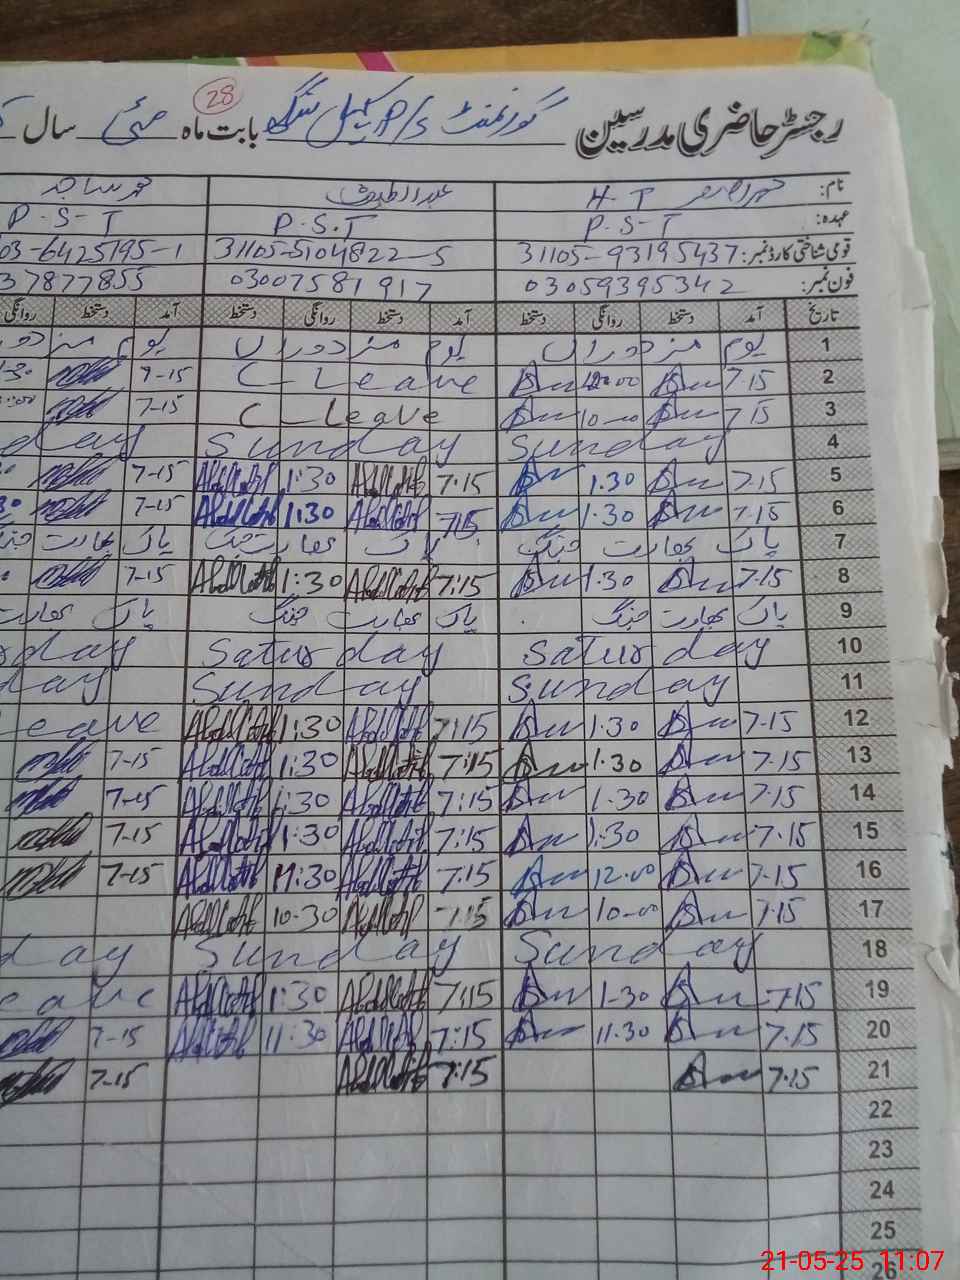 28
رجسٹر حاضری مدرسین گورنمنٹ P/S بابت ماہ مئی سال
نام: H.T عبداللطیف محمد ساجد
عہدہ: P.S-T P.S.T P-S-T
قومی شناختی کارڈ نمبر: 31105-93195437 31105-5104822-5 03-6425195-1
فون نمبر: 03059395342 03007581917 37877855
تاریخ آمد دستخط روانگی دستخط آمد دستخط روانگی دستخط آمد دستخط روانگی
1 یوم مزدوراں یوم مزدوراں یوم مزدو
2 7.15 12.00 C-Leave 7-15 1-30
3 7.15 10-00 C-Leave 7-15
4 Sunday Sunday day
5 7.15 1.30 7.15 1:30 7-15
6 7.15 1.30 7.15 1:30 7-15
7 پاک بھارت جنگ پاک بھارت جنگ پاک بھارت جنگ
8 7.15 1.30 7:15 1:30 7-15
9 پاک بھارت جنگ پاک بھارت جنگ پاک بھارت
10 Saturday Saturday day
11 Sunday Sunday day
12 7.15 1.30 7:15 1:30 eave
13 7.15 1.30 7:15 1:30 7-15
14 7.15 1.30 7:15 1:30 7-15
15 7.15 1:30 7:15 1:30 7-15
16 7-15 12.00 7:15 11:30 7-15
17 7.15 10-00 7:15 10-30
18 Sunday Sunday day
19 7.15 1-30 7:15 1:30 eave
20 7.15 11.30 7:15 11:30 7-15
21 7.15 7:15 7-15
22
23
24
25
26
21-05-25 11:07